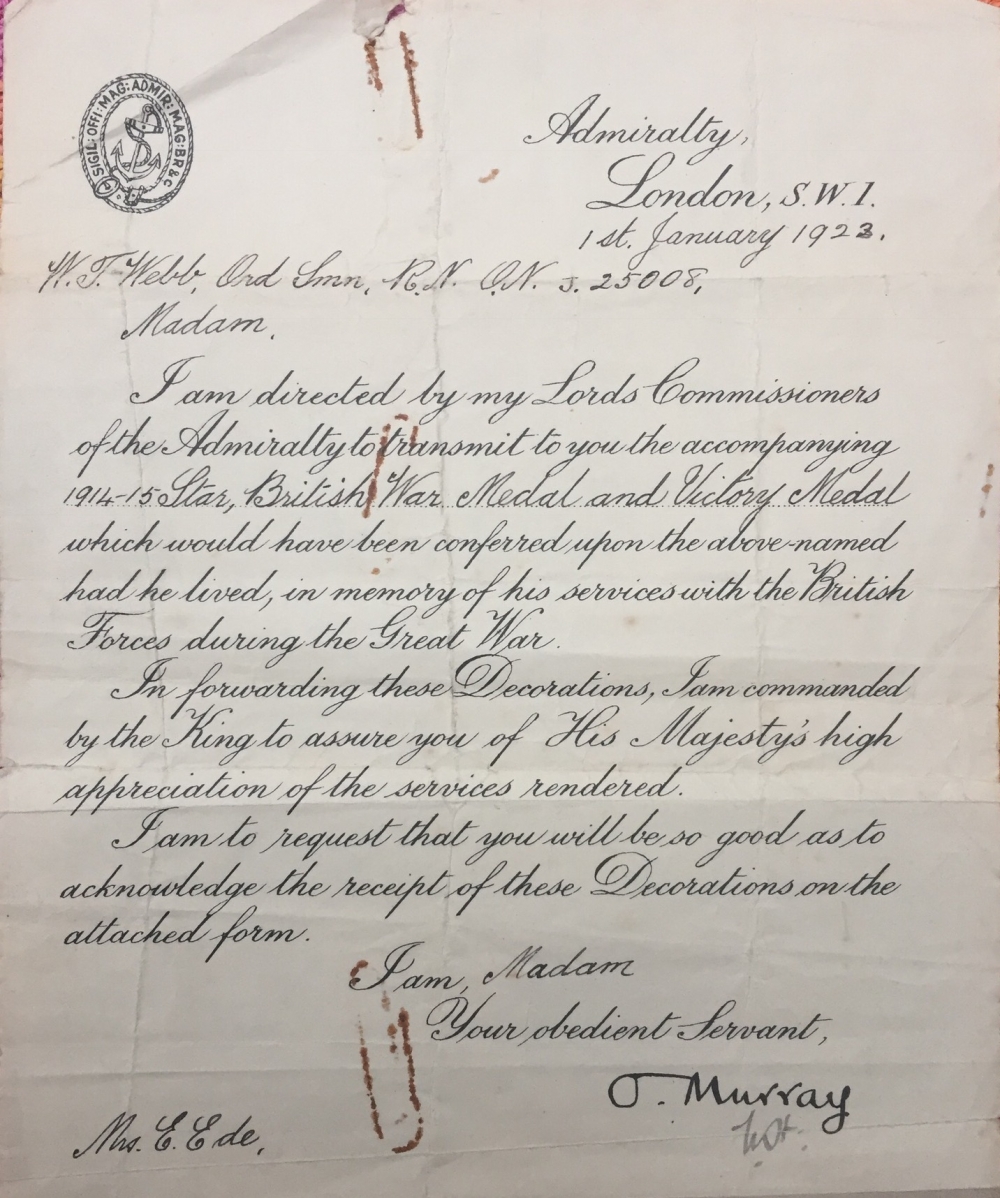 SIGIL: OFFI: MAG: ADMIR: MAG: BR &c
Admiralty,
London, S.W.1.
1st. January 1923.
W. T. Webb, Ord Smn, R.N. O.N. J. 25008,
Madam.
I am directed by my Lords Commissioners
of the Admiralty to transmit to you the accompanying
1914-15 Star, British War Medal and Victory Medal
which would have been conferred upon the above-named
had he lived, in memory of his services with the British
Forces during the Great War.
In forwarding these Decorations, I am commanded
by the King to assure you of His Majesty's high
appreciation of the services rendered.
I am to request that you will be so good as to
acknowledge the receipt of these Decorations on the
attached form.
I am, Madam
Your obedient Servant,
O. Murray
Mrs. E. Ede,